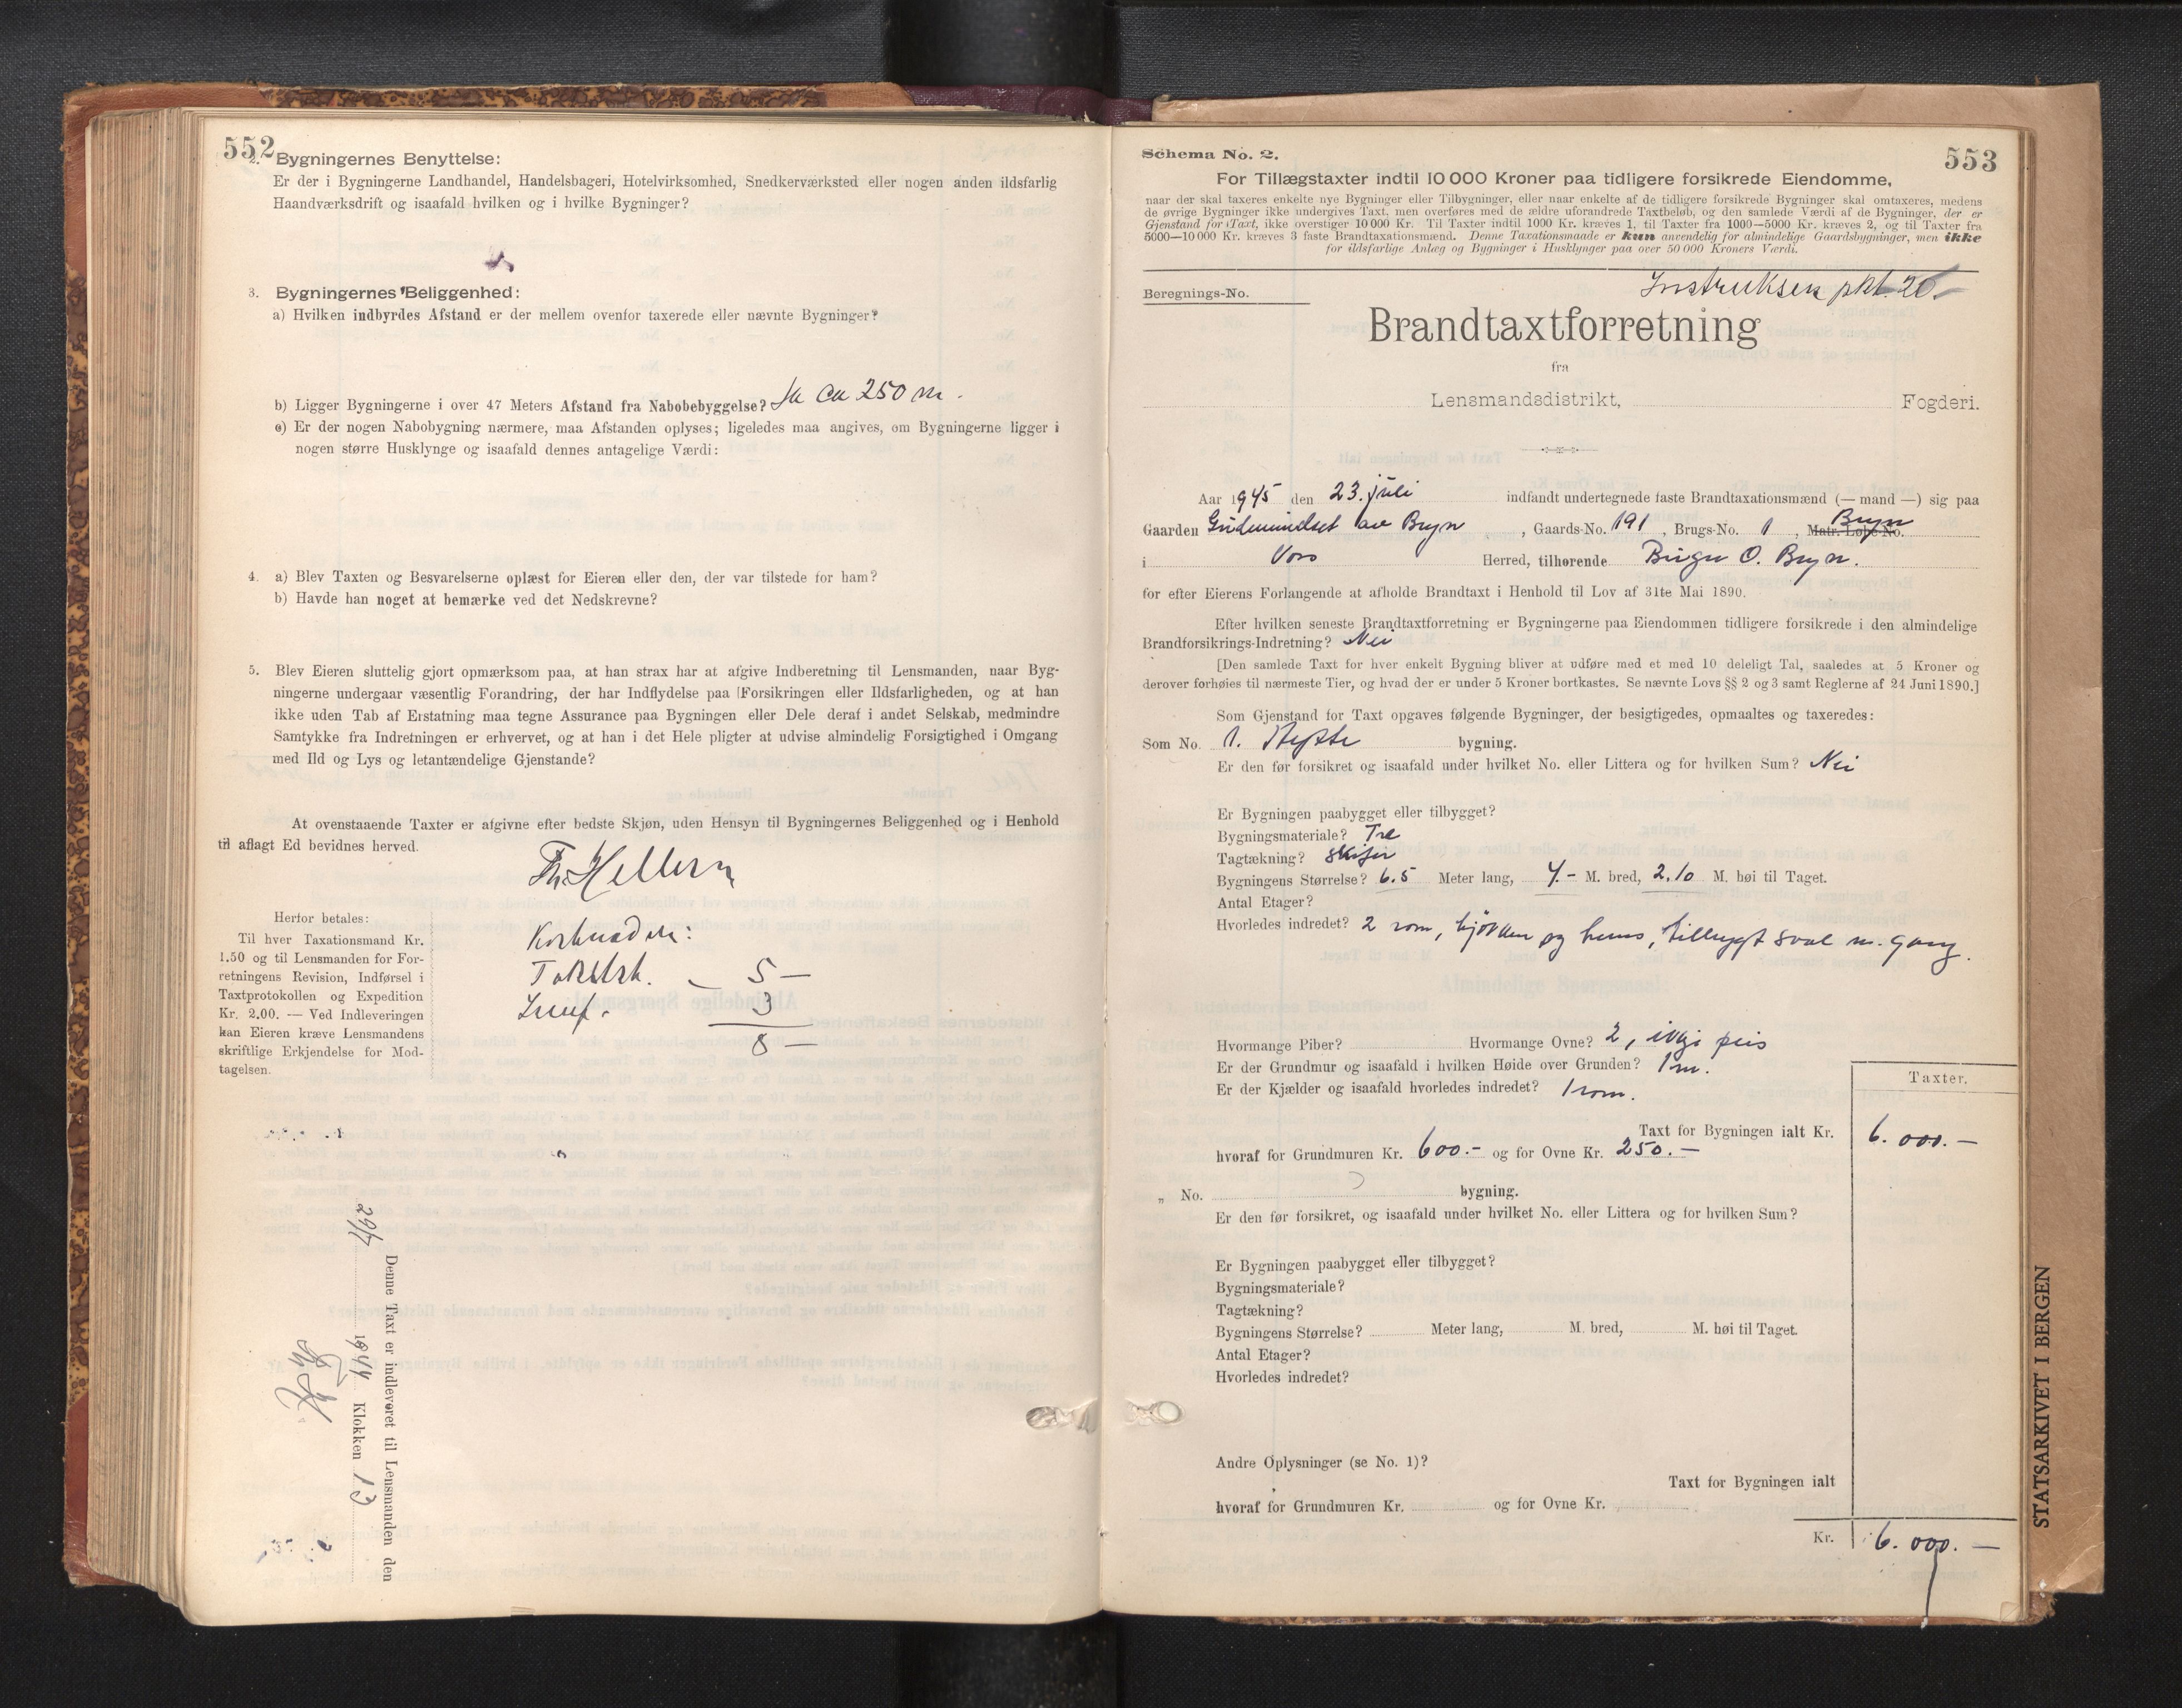 552
2. Bygningernes Benyttelse:
Er der i Bygningerne Landhandel, Handelsbageri, Hotelvirksomhed, Snedkerværksted eller nogen anden ildsfarlig
Haandværksdrift og isaafald hvilken og i hvilke Bygninger?
3. Bygningernes Beliggenhed:
a) Hvilken indbyrdes Afstand er der mellem ovenfor taxerede eller nævnte Bygninger?
b) Ligger Bygningerne i over 47 Meters Afstand fra Nabobebyggelse? Ja ca 250 m.
c) Er der nogen Nabobygning nærmere, maa Afstanden oplyses; ligeledes maa angives, om Bygningerne ligger i
nogen større Husklynge og isaafald dennes antagelige Værdi:
4. a) Blev Taxten og Besvarelserne oplæst for Eieren eller den, der var tilstede for ham?
b) Havde han noget at bemærke ved det Nedskrevne?
5. Blev Eieren sluttelig gjort opmærksom paa, at han strax har at afgive Indberetning til Lensmanden, naar Byg-
ningerne undergaar væsentlig Forandring, der har Indflydelse paa Forsikringen eller Ildsfarligheden, og at han
ikke uden Tab af Erstatning maa tegne Assurance paa Bygningen eller Dele deraf i andet Selskab, medmindre
Samtykke fra Indretningen er erhvervet, og at han i det Hele pligter at udvise almindelig Forsigtighed i Omgang
med Ild og Lys og letantændelige Gjenstande?
At ovenstaaende Taxter er afgivne efter bedste Skjøn, uden Hensyn til Bygningernes Beliggenhed og i Henhold
til aflagt Ed bevidnes herved.
Th. Hellern
Herfor betales:
Til hver Taxationsmand Kr.
1.50 og til Lensmanden for For-
retningens Revision, Indførsel i
Taxtprotokollen og Expedition
Kr. 2.00. — Ved Indleveringen
kan Eieren kræve Lensmandens
skriftlige Erkjendelse for Mod-
tagelsen.
Kostnaden:
Takstst. — 5 —
Innf. 3
8 —
Denne Taxt er indleveret til Lensmanden den
29/7 1944 Klokken 13
Th. H.
553
Schema No. 2.
For Tillægstaxter indtil 10 000 Kroner paa tidligere forsikrede Eiendomme,
naar der skal taxeres enkelte nye Bygninger eller Tilbygninger, eller naar enkelte af de tidligere forsikrede Bygninger skal omtaxeres, medens
de øvrige Bygninger ikke undergives Taxt, men overføres med de ældre uforandrede Taxtbeløb, og den samlede Værdi af de Bygninger, der er
Gjenstand for Taxt, ikke overstiger 10 000 Kr. Til Taxter indtil 1000 Kr. kræves 1, til Taxter fra 1000—5000 Kr. kræves 2, og til Taxter fra
5000—10 000 Kr. kræves 3 faste Brandtaxationsmænd. Denne Taxationsmaade er kun anvendelig for almindelige Gaardsbygninger, men ikke
for ildsfarlige Anlæg og Bygninger i Husklynger paa over 50 000 Kroners Værdi.
Instruksen pkt. 20.
Beregnings-No.
Brandtaxtforretning
fra
Lensmandsdistrikt, Fogderi.
Aar 1945 den 23. juli indfandt undertegnede faste Brandtaxationsmænd (— mand —) sig paa
Gaarden Gudmundset av Bryn, Gaards-No. 191, Brugs-No. 1, Matr. Løbe-No. Bryn
i Voss Herred, tilhørende Birger O. Bryn.
for efter Eierens Forlangende at afholde Brandtaxt i Henhold til Lov af 31te Mai 1890.
Efter hvilken seneste Brandtaxtforretning er Bygningerne paa Eiendommen tidligere forsikrede i den almindelige
Brandforsikrings-Indretning? Nei
[Den samlede Taxt for hver enkelt Bygning bliver at udføre med et med 10 deleligt Tal, saaledes at 5 Kroner og
derover forhøies til nærmeste Tier, og hvad der er under 5 Kroner bortkastes. Se nævnte Lovs §§ 2 og 3 samt Reglerne af 24 Juni 1890.]
Som Gjenstand for Taxt opgaves følgende Bygninger, der besigtigedes, opmaaltes og taxeredes:
Som No. 1. Hytte bygning.
Er den før forsikret og isaafald under hvilket No. eller Littera og for hvilken Sum? Nei
Er Bygningen paabygget eller tilbygget?
Bygningsmateriale? Tre
Tagtækning? skifer
Bygningens Størrelse? 6.5 Meter lang, 4.- M. bred, 2.10 M. høi til Taget.
Antal Etager?
Hvorledes indredet? 2 rom, kjøkken og hems, tilbygt sval m. gang.
Hvormange Piber? Hvormange Ovne? 2, ikkje peis
Er der Grundmur og isaafald i hvilken Høide over Grunden? 1 m.
Er der Kjælder og isaafald hvorledes indredet? 1 rom.
Taxter.
Taxt for Bygningen ialt Kr. 6.000.—
hvoraf for Grundmuren Kr. 600.- og for Ovne Kr. 250.—
„ No. bygning.
Er den før forsikret, og isaafald under hvilket No. eller Littera og for hvilken Sum?
Er Bygningen paabygget eller tilbygget?
Bygningsmateriale?
Tagtækning?
Bygningens Størrelse? Meter lang, M. bred, M. høi til Taget.
Antal Etager?
Hvorledes indredet?
Andre Oplysninger (se No. 1)?
Taxt for Bygningen ialt
hvoraf for Grundmuren Kr. og for Ovne Kr.
Kr. 6.000.—
STATSARKIVET I BERGEN